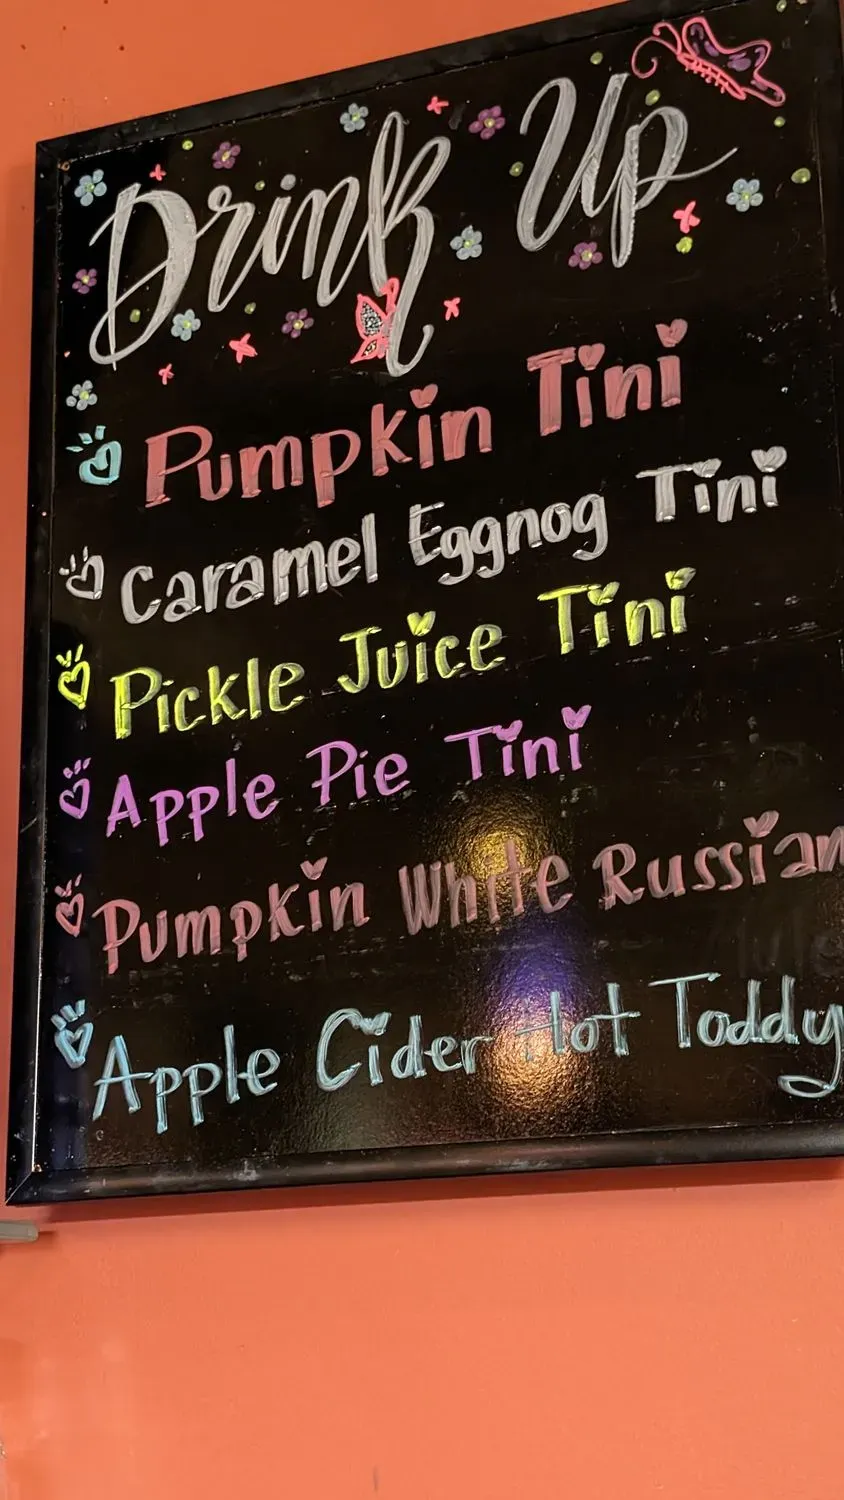 Drink Up
Pumpkin Tini
Caramel Eggnog Tini
Pickle Juice Tini
Apple Pie Tini
Pumpkin White Russian
Apple Cider Hot Toddy